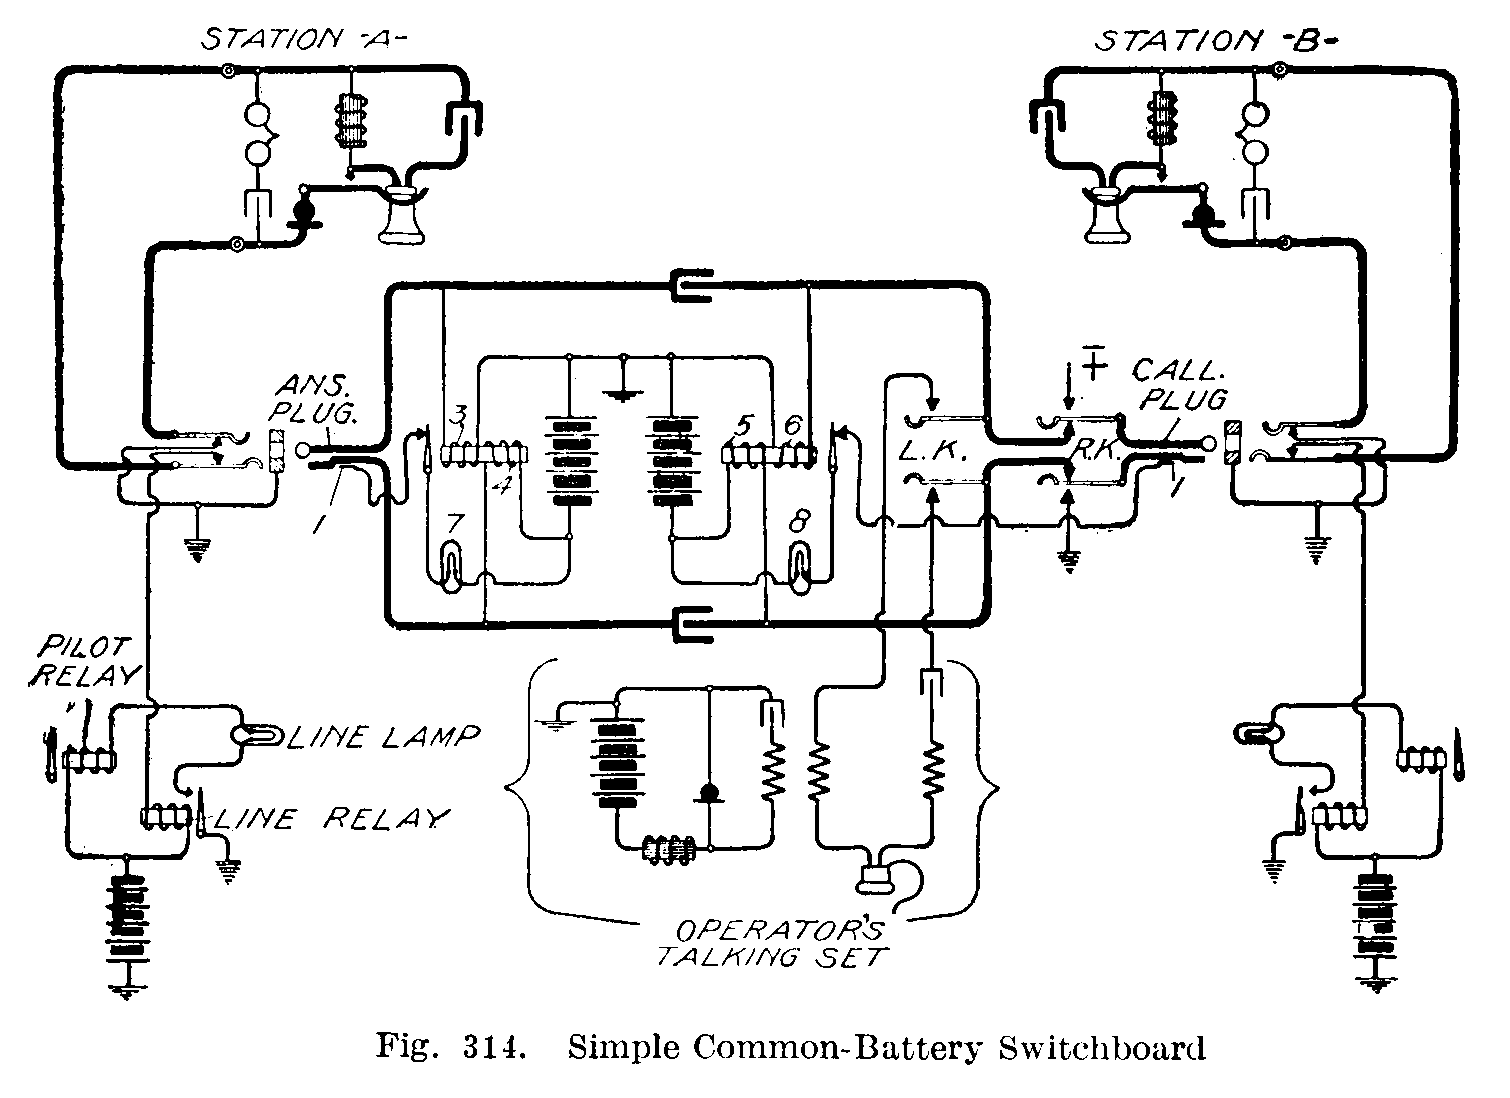 STATION -A-
STATION -B-
ANS.
PLUG.
CALL.
PLUG
3
4
5
6
L.K.
R.K.
1
1
7
8
PILOT
RELAY
LINE LAMP
LINE RELAY
OPERATOR'S
TALKING SET
Fig. 314. Simple Common-Battery Switchboard